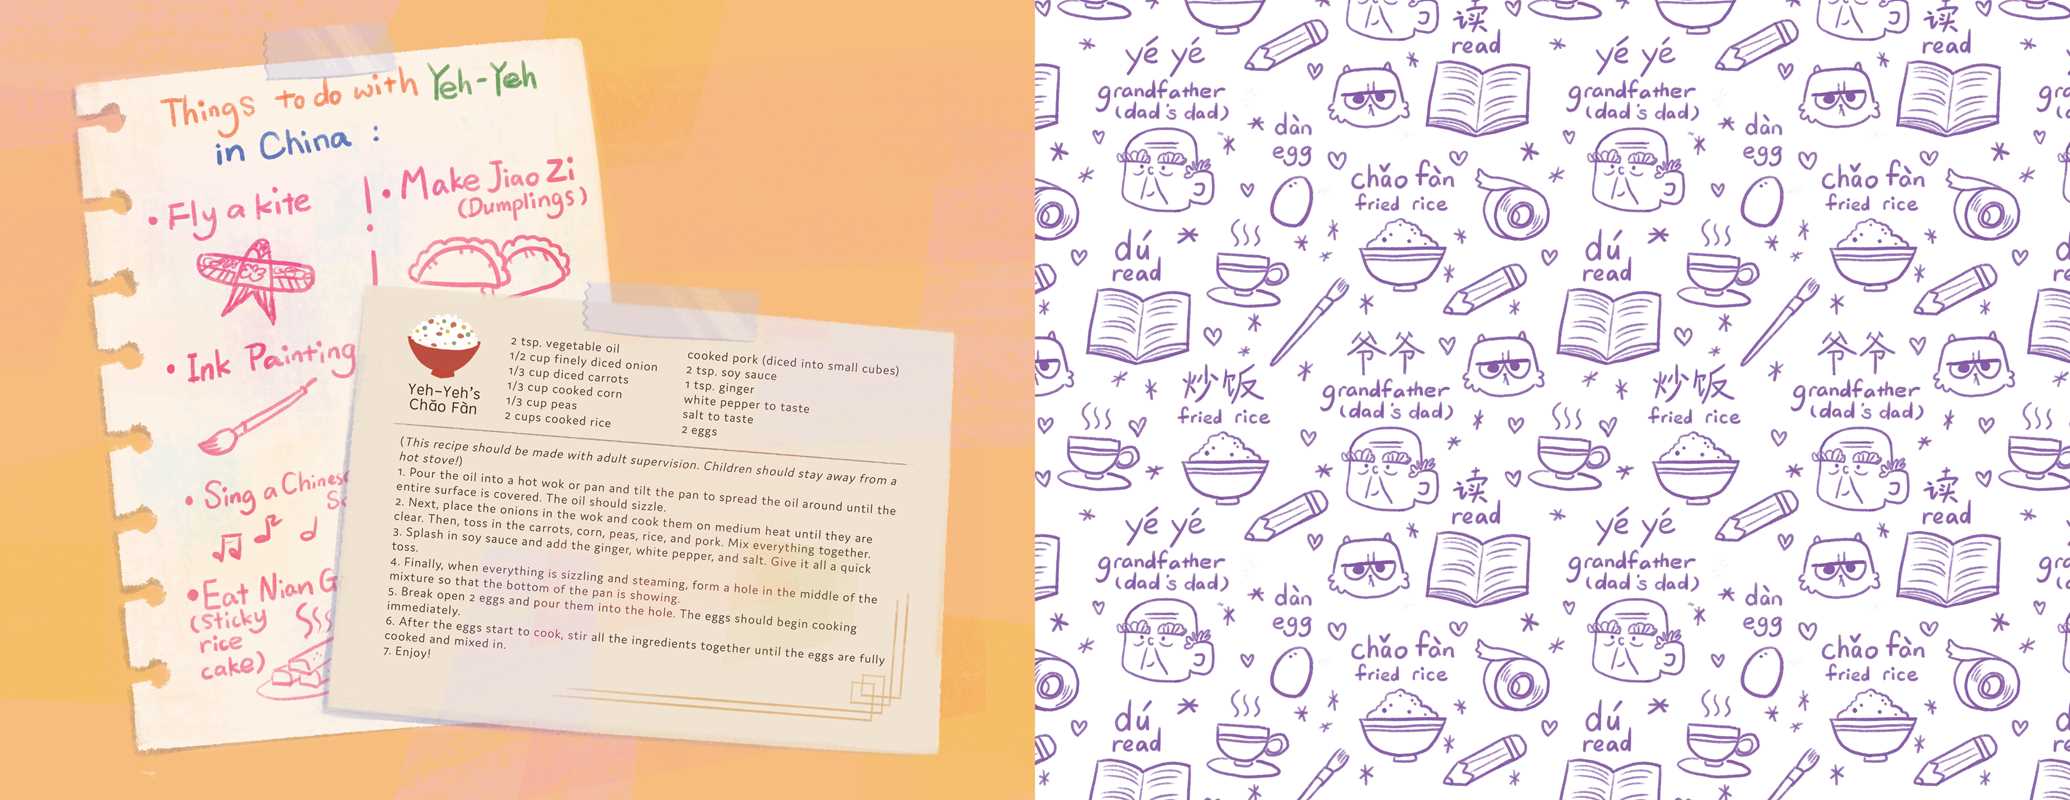 Things to do with Yeh-Yeh
in China :
• Fly a kite
• Make Jiao Zi
(Dumplings)
• Ink Painting
• Sing a Chinese
• Eat Nian G
(sticky
rice
cake)
Yeh-Yeh's
Chǎo Fàn
2 tsp. vegetable oil
1/2 cup finely diced onion
1/3 cup diced carrots
1/3 cup cooked corn
1/3 cup peas
2 cups cooked rice
cooked pork (diced into small cubes)
2 tsp. soy sauce
1 tsp. ginger
white pepper to taste
salt to taste
2 eggs
(This recipe should be made with adult supervision. Children should stay away from a
hot stove!)
1. Pour the oil into a hot wok or pan and tilt the pan to spread the oil around until the
entire surface is covered. The oil should sizzle.
2. Next, place the onions in the wok and cook them on medium heat until they are
clear. Then, toss in the carrots, corn, peas, rice, and pork. Mix everything together.
3. Splash in soy sauce and add the ginger, white pepper, and salt. Give it all a quick
toss.
4. Finally, when everything is sizzling and steaming, form a hole in the middle of the
mixture so that the bottom of the pan is showing.
5. Break open 2 eggs and pour them into the hole. The eggs should begin cooking
immediately.
6. After the eggs start to cook, stir all the ingredients together until the eggs are fully
cooked and mixed in.
7. Enjoy!
读
read
读
read
yé yé
grandfather
(dad's dad)
yé yé
grandfather
(dad's dad)
dàn
egg
dàn
egg
chǎo fàn
fried rice
chǎo fàn
fried rice
dú
read
dú
read
爷爷
grandfather
(dad's dad)
爷爷
grandfather
(dad's dad)
炒饭
fried rice
炒饭
fried rice
读
read
读
read
yé yé
grandfather
(dad's dad)
yé yé
grandfather
(dad's dad)
dàn
egg
dàn
egg
chǎo fàn
fried rice
chǎo fàn
fried rice
dú
read
dú
read